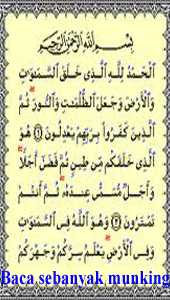 بِسْمِ ٱللَّهِ ٱلرَّحْمَٰنِ ٱلرَّحِيمِ
ٱلْحَمْدُ لِلَّهِ ٱلَّذِى خَلَقَ ٱلسَّمَٰوَٰتِ
وَٱلْأَرْضَ وَجَعَلَ ٱلظُّلُمَٰتِ وَٱلنُّورَ ۖ ثُمَّ
ٱلَّذِينَ كَفَرُوا۟ بِرَبِّهِمْ يَعْدِلُونَ ۝ هُوَ
ٱلَّذِى خَلَقَكُم مِّن طِينٍ ثُمَّ قَضَىٰٓ أَجَلًا ۖ
وَأَجَلٌ مُّسَمًّى عِندَهُۥ ۖ ثُمَّ أَنتُمْ
تَمْتَرُونَ ۝ وَهُوَ ٱللَّهُ فِى ٱلسَّمَٰوَٰتِ
وَفِى ٱلْأَرْضِ ۖ يَعْلَمُ سِرَّكُمْ وَجَهْرَكُمْ
Baca sebanyak munking